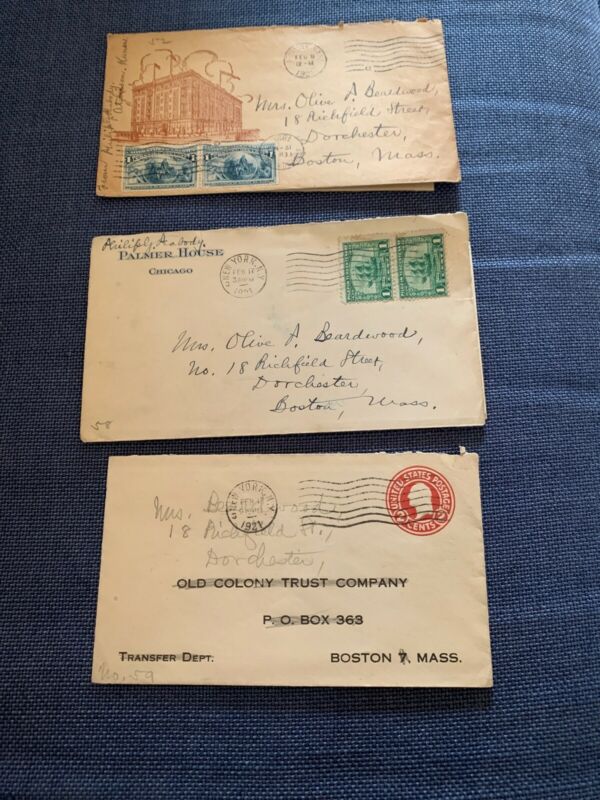 52
From Philip Peabody
FEB 9
12-M
192
Mrs. Olive A. Beardwood,
18 Richfield Street,
Dorchester,
Boston, Mass.
1 1
Philip G. Peabody.
PALMER HOUSE
CHICAGO
NEW YORK, N.Y.
FEB 11
1921
1 1
Mrs. Olive A. Beardwood,
No. 18 Richfield Street,
Dorchester,
Boston, Mass.
58
NEW YORK, N.Y.
FEB
1921
UNITED STATES POSTAGE
2 CENTS 2
Mrs. Beardwood,
18 Richfield St.,
Dorchester,
OLD COLONY TRUST COMPANY
P. O. BOX 363
TRANSFER DEPT.
BOSTON 7, MASS.
No. 59